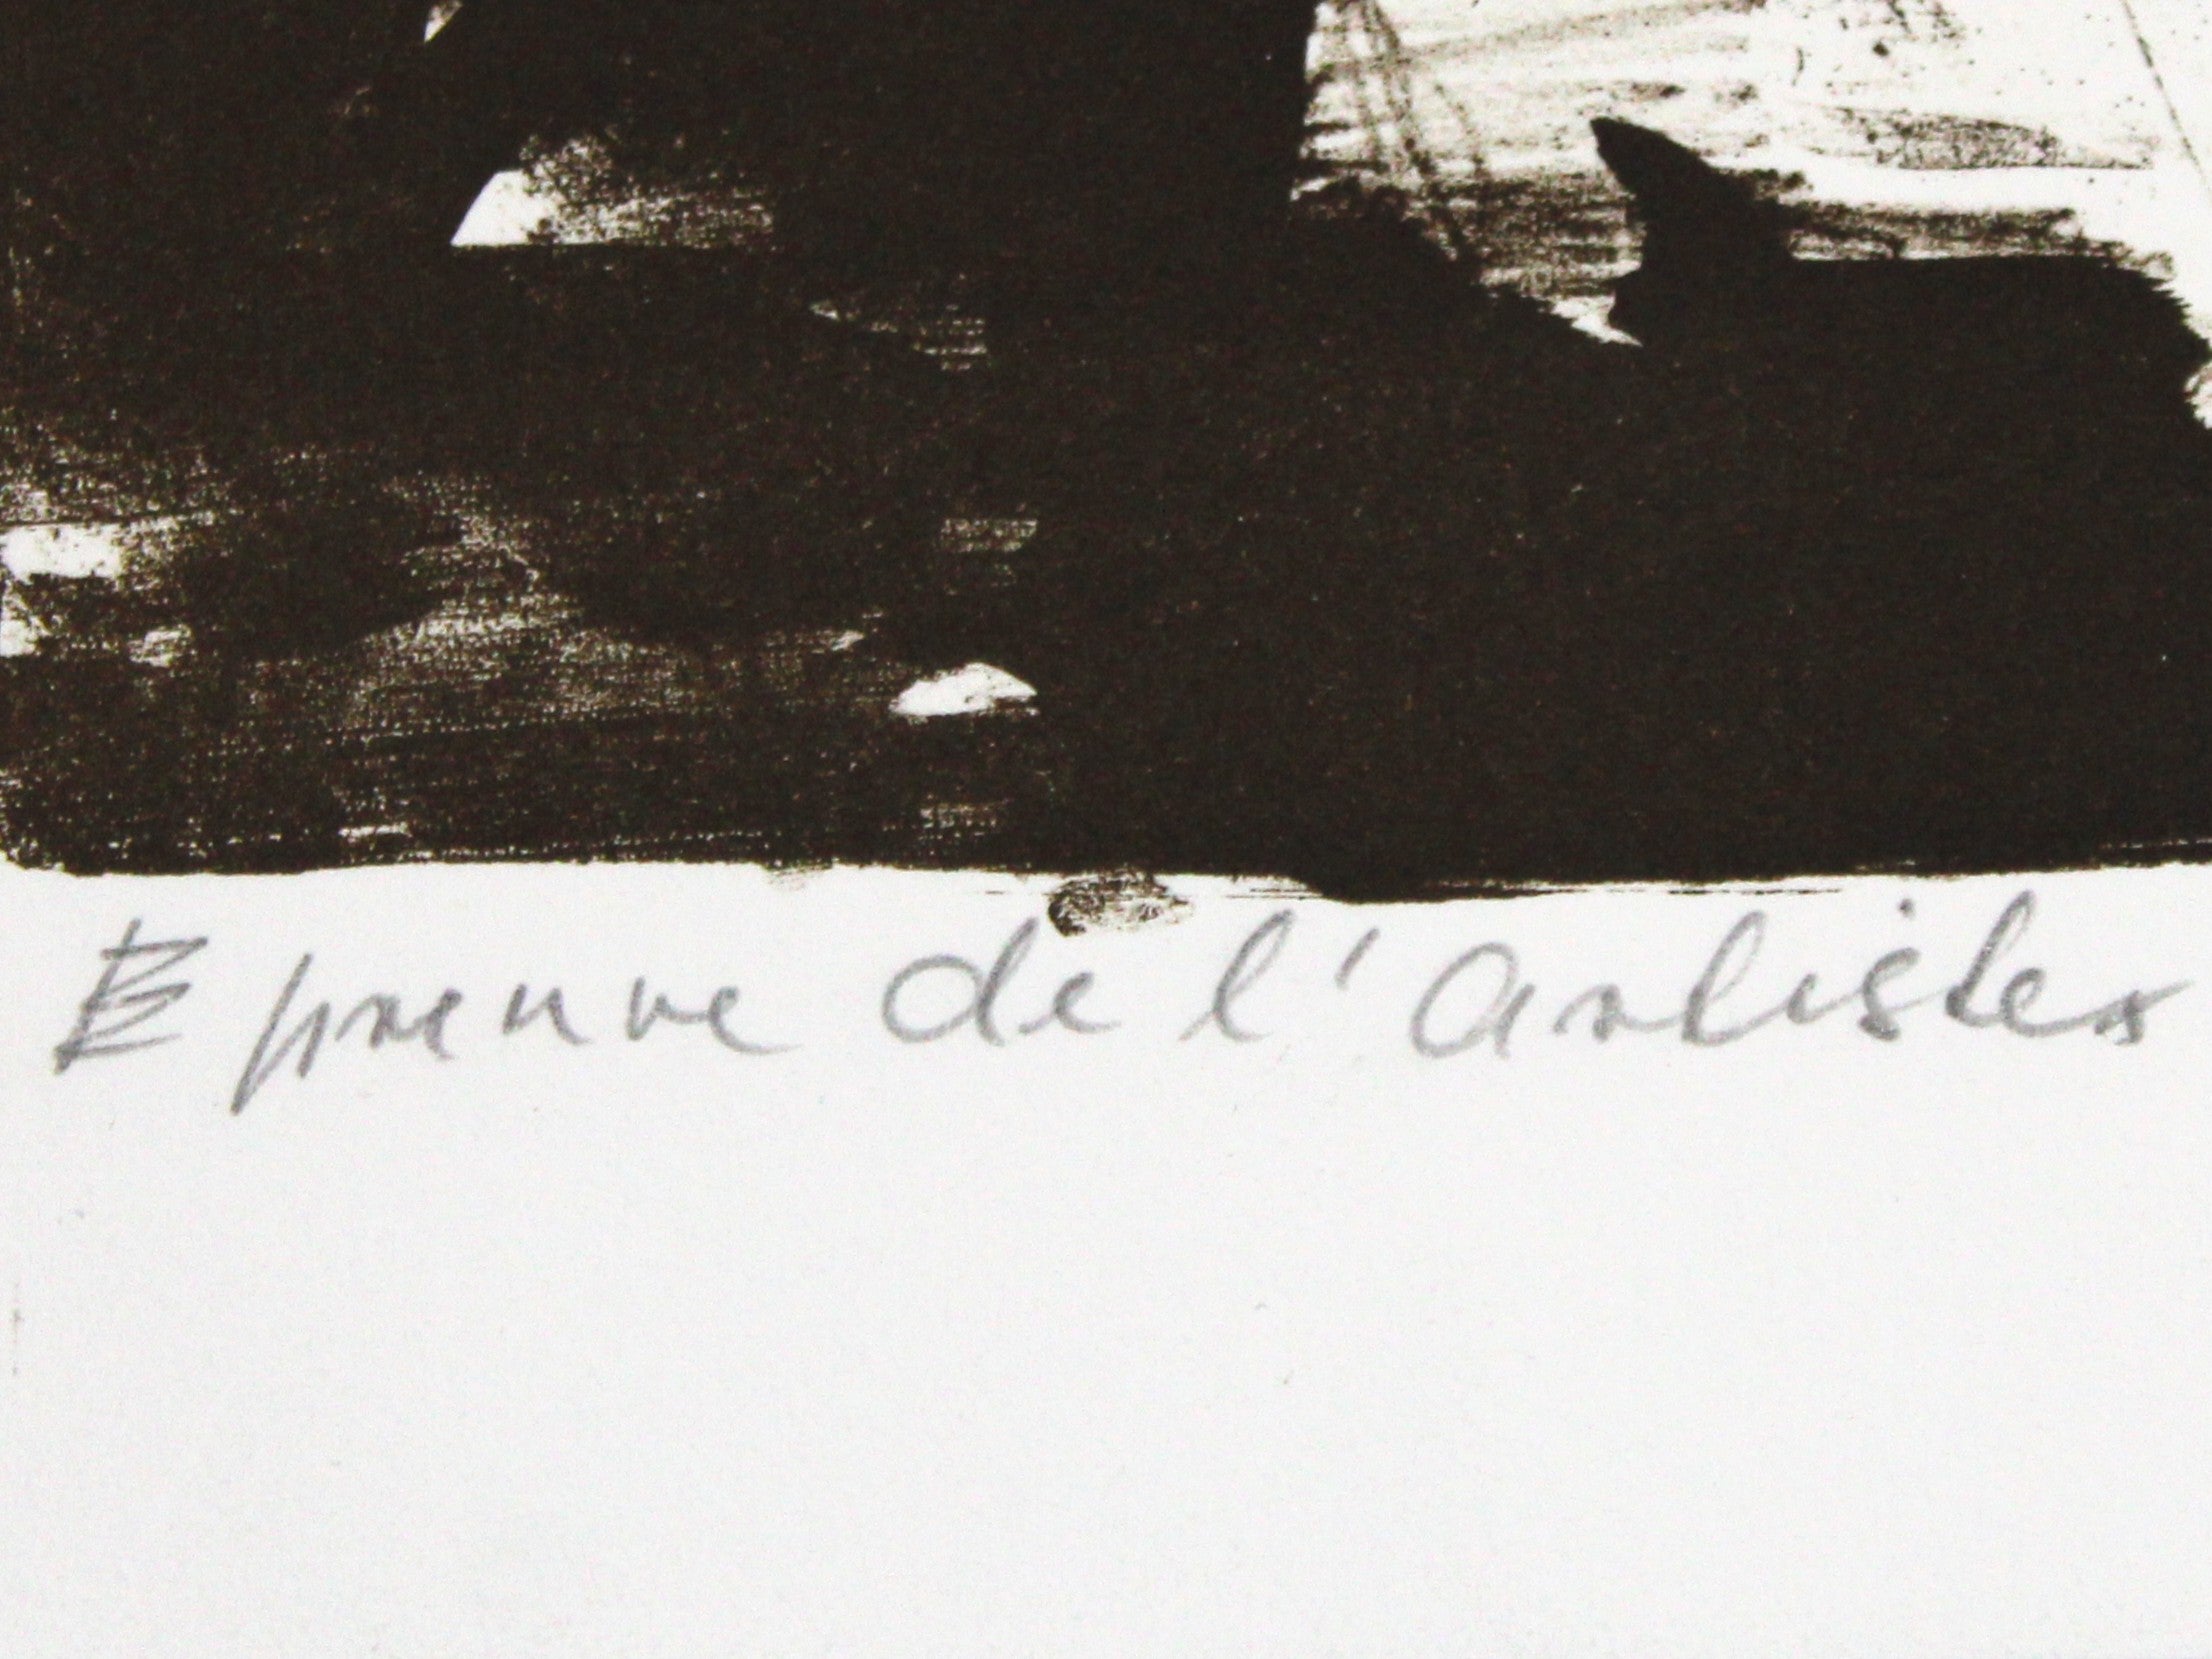 Epreuve de l'Artiste